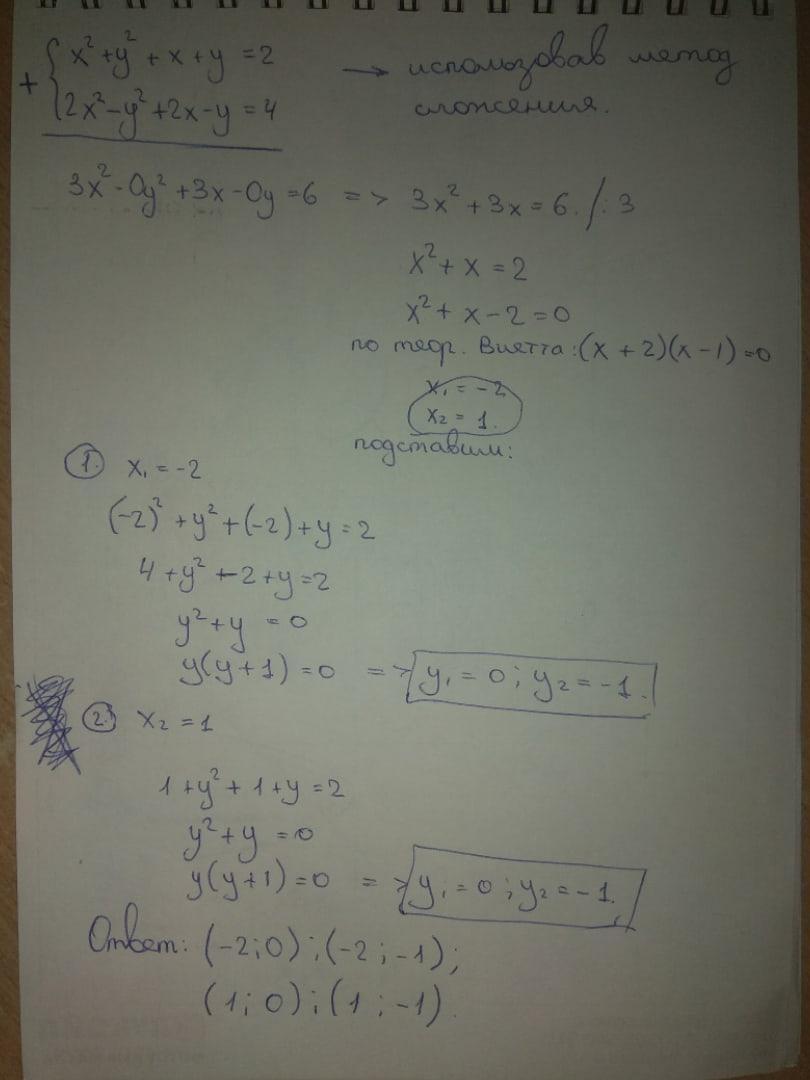 + { x² + y² + x + y = 2 → использовав метод
2x² - y² + 2x - y = 4 сложения.
3x² - 0y² + 3x - 0y = 6 => 3x² + 3x = 6. /: 3
x² + x = 2
x² + x - 2 = 0
по теор. Виетта: (x + 2)(x - 1) = 0
x₁ = -2
x₂ = 1.
подставим:
1. x₁ = -2
(-2)² + y² + (-2) + y = 2
4 + y² - 2 + y = 2
y² + y = 0
y(y + 1) = 0 => y₁ = 0; y₂ = -1.
2. x₂ = 1
1 + y² + 1 + y = 2
y² + y = 0
y(y + 1) = 0 => y₁ = 0; y₂ = -1.
Ответ: (-2; 0); (-2; -1);
(1; 0); (1; -1).